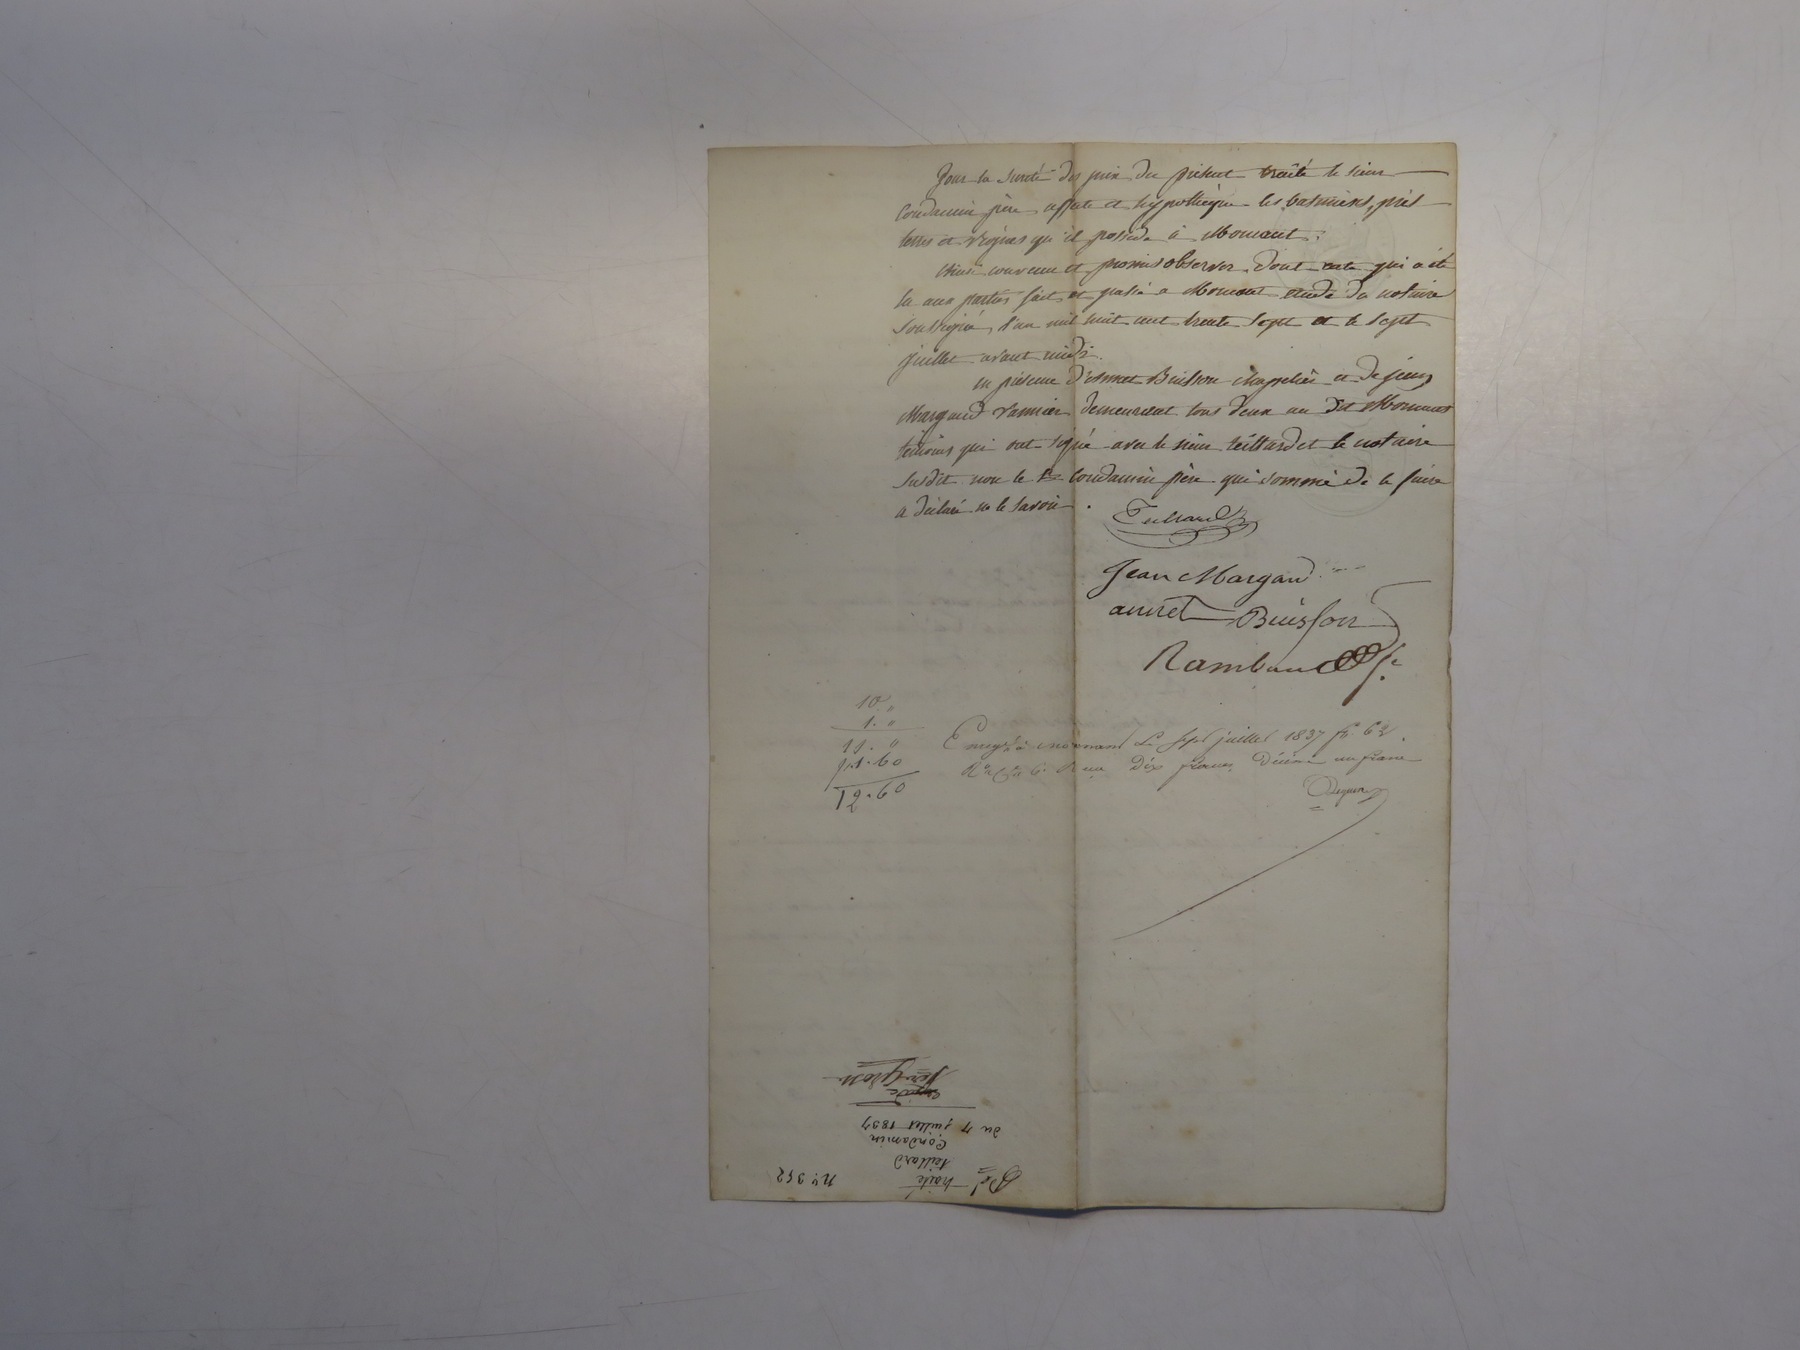 Pour la sureté du prix du présent traité le sieur
Condamin père affecte et hypothèque les batimens, prés
terres et vignes qu'il possède à Mornant.
Ainsi convenu et promis observer. Dont acte qui a été
lu aux parties fait et passé a Mornant etude du notaire
soussigné, l'an mil huit cent trente sept et le sept
juillet avant midi.
en présence d'Annet Buisson chapelier et de Jean
Margaud vannier demeurant tous deux au dit Mornant
témoins qui ont signé avec le sieur teillard et le notaire
susdit non le Sr Condamin père qui sommé de le faire
a déclaré ne le savoir.
Teillard
Jean Margaud
annet Buisson
Rambaud
10. "
1. "
11. "
1.60
12.60
Enregré à mornant Le sept juillet 1837 fo. 62
dix francs Décime un franc
No. 352
traité
teillard
Condamin
du 7 juillet 1837